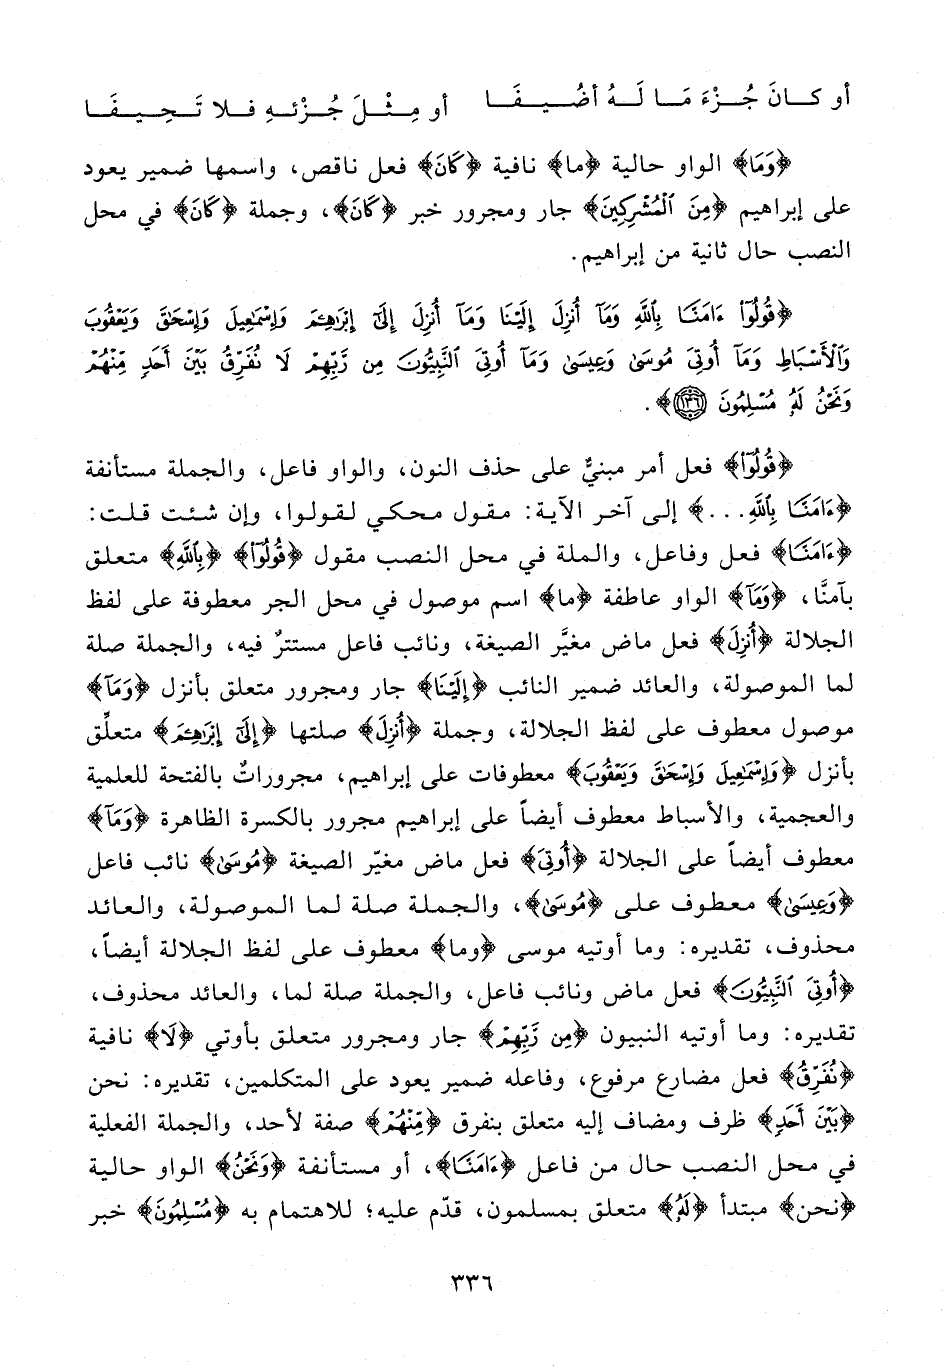 أو كــانَ جُــزْءَ مَــا لَــهُ أضُــيــفَــا أو مِــثْــلَ جُــزْئــهِ فــلا تَــحِــيــفَــا
﴿وَمَا﴾ الواو حالية ﴿ما﴾ نافية ﴿كَانَ﴾ فعل ناقص، واسمها ضمير يعود
على إبراهيم ﴿مِنَ ٱلْمُشْرِكِينَ﴾ جار ومجرور خبر ﴿كَانَ﴾، وجملة ﴿كَانَ﴾ في محل
النصب حال ثانية من إبراهيم.
﴿قُولُوٓا۟ ءَامَنَّا بِٱللَّهِ وَمَآ أُنزِلَ إِلَيْنَا وَمَآ أُنزِلَ إِلَىٰٓ إِبْرَٰهِـۧمَ وَإِسْمَٰعِيلَ وَإِسْحَٰقَ وَيَعْقُوبَ
وَٱلْأَسْبَاطِ وَمَآ أُوتِىَ مُوسَىٰ وَعِيسَىٰ وَمَآ أُوتِىَ ٱلنَّبِيُّونَ مِن رَّبِّهِمْ لَا نُفَرِّقُ بَيْنَ أَحَدٍ مِّنْهُمْ
وَنَحْنُ لَهُۥ مُسْلِمُونَ ١٣٦﴾.
﴿قُولُوٓا۟﴾ فعل أمر مبنيٌ على حذف النون، والواو فاعل، والجملة مستأنفة
﴿ءَامَنَّا بِٱللَّهِ...﴾ إلى آخر الآية: مقول محكي لقولوا، وإن شئت قلت:
﴿ءَامَنَّا﴾ فعل وفاعل، والملة في محل النصب مقول ﴿قُولُوٓا۟﴾ ﴿بِٱللَّهِ﴾ متعلق
بآمنَّا، ﴿وَمَآ﴾ الواو عاطفة ﴿ما﴾ اسم موصول في محل الجر معطوفة على لفظ
الجلالة ﴿أُنزِلَ﴾ فعل ماض مغيَّر الصيغة، ونائب فاعل مستترٌ فيه، والجملة صلة
لما الموصولة، والعائد ضمير النائب ﴿إِلَيْنَا﴾ جار ومجرور متعلق بأنزل ﴿وَمَآ﴾
موصول معطوف على لفظ الجلالة، وجملة ﴿أُنزِلَ﴾ صلتها ﴿إِلَىٰٓ إِبْرَٰهِـۧمَ﴾ متعلِّق
بأنزل ﴿وَإِسْمَٰعِيلَ وَإِسْحَٰقَ وَيَعْقُوبَ﴾ معطوفات على إبراهيم، مجروراتٌ بالفتحة للعلمية
والعجمية، والأسباط معطوف أيضاً على إبراهيم مجرور بالكسرة الظاهرة ﴿وَمَآ﴾
معطوف أيضاً على الجلالة ﴿أُوتِىَ﴾ فعل ماض مغيّر الصيغة ﴿مُوسَىٰ﴾ نائب فاعل
﴿وَعِيسَىٰ﴾ معطوف على ﴿مُوسَىٰ﴾، والجملة صلة لما الموصولة، والعائد
محذوف، تقديره: وما أوتيه موسى ﴿وما﴾ معطوف على لفظ الجلالة أيضاً،
﴿أُوتِىَ ٱلنَّبِيُّونَ﴾ فعل ماض ونائب فاعل، والجملة صلة لما، والعائد محذوف،
تقديره: وما أوتيه النبيون ﴿مِن رَّبِّهِمْ﴾ جار ومجرور متعلق بأوتي ﴿لَا﴾ نافية
﴿نُفَرِّقُ﴾ فعل مضارع مرفوع، وفاعله ضمير يعود على المتكلمين، تقديره: نحن
﴿بَيْنَ أَحَدٍ﴾ ظرف ومضاف إليه متعلق بنفرق ﴿مِّنْهُمْ﴾ صفة لأحد، والجملة الفعلية
في محل النصب حال من فاعل ﴿ءَامَنَّا﴾، أو مستأنفة ﴿وَنَحْنُ﴾ الواو حالية
﴿نحن﴾ مبتدأ ﴿لَهُۥ﴾ متعلق بمسلمون، قدّم عليه؛ للاهتمام به ﴿مُسْلِمُونَ﴾ خبر
٣٣٦